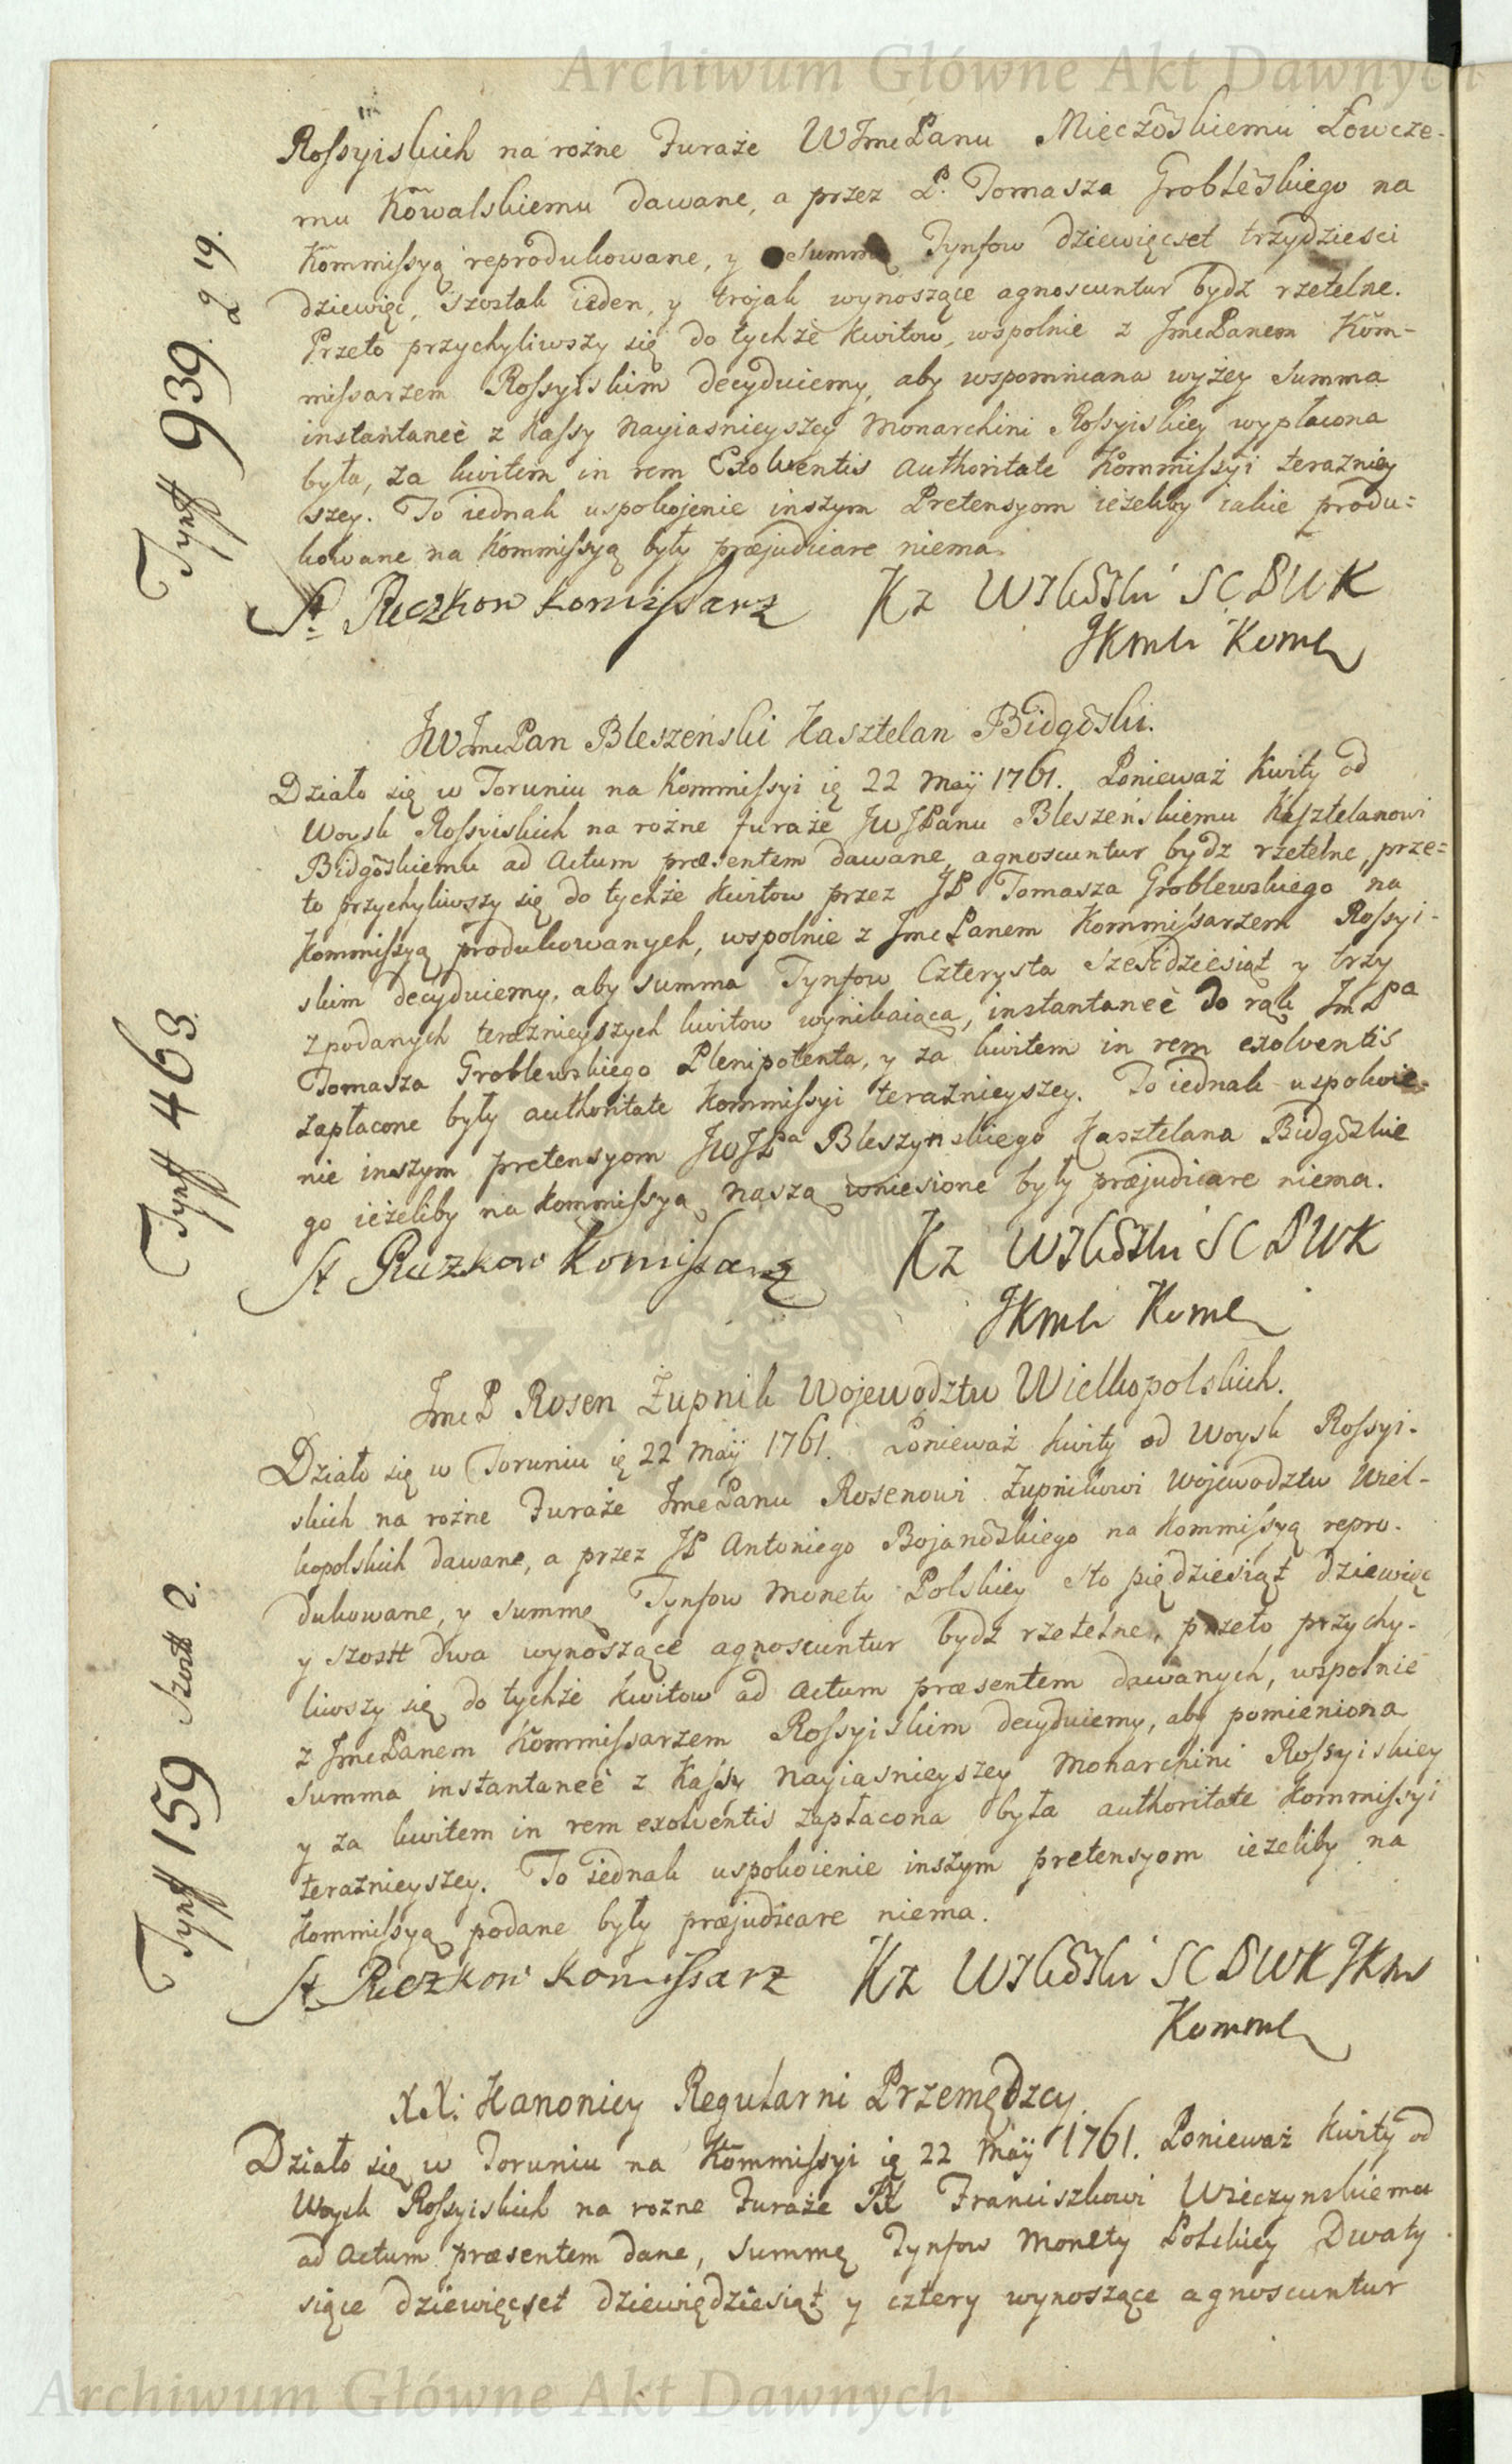 Archiwum Główne Akt Dawnych
Rossyiskich na rożne Furaże WJmcPanu Mieczõskiemu Łowcze-
mu Kowalskiemu dawane, a przez P. Tomasza Groblẽskiego na
Kommissyą reprodukowane, y Summę Tynfow dziewięcset trzydzieści
dziewięć, szostak ieden, y trojak wynoszące agnoscuntur bydz rzetelne.
Przeto przychyliwszy się do tychże Kwitow, wspolnie z JmcPanem Kom-
missarzem Rossyiskim decyduiemy, aby wspomniana wyżey Summa
instantaneè z Kassy Nayiasnieyszey Monarchini Rossyiskiey wypłacona
była, za kwitem in rem Exolventis authoritate Kommissyi teraźniey
szey. To iednak uspokojenie inszym Pretensyom ieżeliby iakie produ=
kowane na Kommissyą były præjudicare niema.
St Puczkow Komissarz Kz Wilkõski SCPWK
JKMci Komm
Tynff 939. g 19.
JWJmcPan Bleszeński Kasztelan Bidgõski.
Działo się w Toruniu na Kommissyi ię 22 Maÿ 1761. Ponieważ Kwity od
Woysk Rossyiskich na rożne furaże JWJPanu Bleszeńskiemu Kasztelanowi
Bidgõskiemu ad Actum præsentem dawane, agnoscuntur bydz rzetelne, prze=
to przychyliwszy się do tychże Kwitow przez JP Tomasza Groblewskiego na
Kommissyą produkowanych, wspolnie z JmcPanem Kommissarzem Rossyi-
skim decyduiemy, aby summa Tynfow Czterysta Sześćdziesiąt y trzy
z podanych teraznieyszych kwitow wynikaiąca, instantaneè do rąk JmPa
Tomasza Groblewskiego Plenipotenta, y za kwitem in rem exolventis
zapłacone były authoritate Kommissyi teraźnieyszey. To iednak uspokoie=
nie inszym pretensyom JWJPa Bleszynskiego Kasztelana Bidgõskie
go ieżeliby na Kommissyą naszą wniesione były præjudicare niema.
St Puczkow Komissarz Kz Wilkõski SCPWK
JKMci Komm
Tynff 463.
JmcP Rosen Żupnik Wojewodztw Wielkopolskich.
Działo się w Toruniu ię 22 Maÿ 1761. Ponieważ kwity od Woysk Rossyi-
skich na rożne Furaże JmcPanu Rosenowi Żupnikowi Wojewodztw Wiel-
kopolskich dawane, a przez JP Antoniego Bojanõskiego na Kommissyą repro-
dukowane, y summę Tynfow Monety Polskiey sto pięдziesiąt dziewięć
y szostt dwa wynoszące agnoscuntur bydz rzetelne, przeto przychy-
liwszy się do tychże Kwitow ad Actum præsentem dawanych, wspolnie
z JmcPanem Kommissarzem Rossyiskim decyduiemy, aby pomieniona
Summa instantaneè z Kassy Nayiasnieyszey Monarchini Rossyiskiey
y za kwitem in rem exolventis zapłacona była authoritate Kommissyi
teraźnieyszey. To iednak uspokoienie inszym pretensyom ieżeliby na
Kommissyą podane były præjudicare niema.
St Puczkow Komissarz Kz Wilkõski SCPWK JKM
Komm
Tynff 159 Szostt 2.
XX. Kanonicy Regularni Przemędzcy.
Działo się w Toruniu na Kommissyi ię 22 Maÿ 1761. Ponieważ kwity od
Woysk Rossyiskich na rożne Furaże Franciszkowi Wieczynskiemu
ad Actum præsentem dane, Summę Tynfow Monety Polskiey Dwaty
siące dziewięcset dziewiędziesiąt y cztery wynoszące agnoscuntur
Archiwum Główne Akt Dawnych